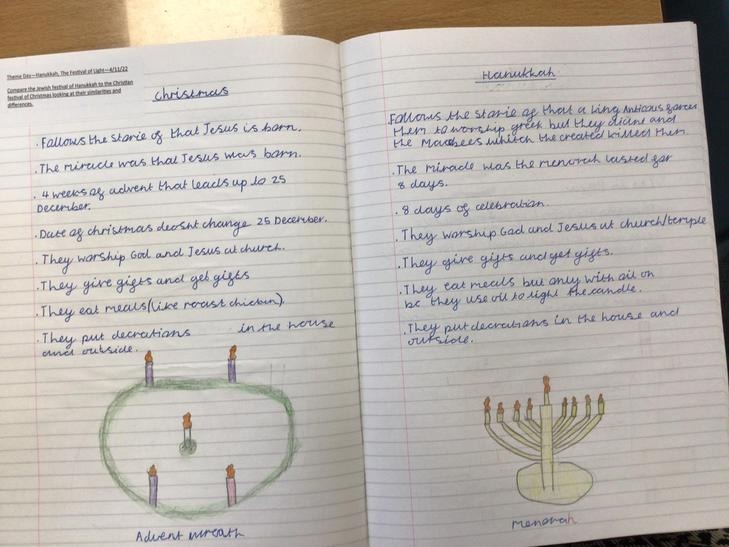 Theme Day—Hanukkah, The Festival of Light—4/11/22
Compare the Jewish festival of Hanukkah to the Christian
festival of Christmas looking at their similarities and
differences.
Christmas
. Follows the storie of that Jesus is born.
. The miracle was that Jesus was born.
. 4 weeks of advent that leads up to 25
December.
. Date of christmas deosnt change 25 December.
. They worship God and Jesus at church.
. They give gifts and get gifts
. They eat meals (like roast chicken).
. They put decrations in the house
and outside.
Advent wreath
Hanukkah
Follows the storie of that a king Antious forces
them to worship greek but they dident and
the Macbees which the created killed them.
. The miracle was the menorah lasted for
8 days.
. 8 days of celebration.
. They worship God and Jesus at church/temple
. They give gifts and get gifts.
. They eat meals but only with oil on
bc they use oil to light the candle.
. They put decrations in the house and
outside.
Menorah